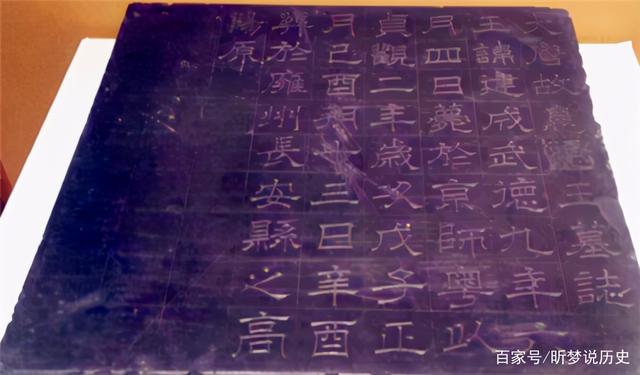 大唐故息隱王墓誌
王諱建成武德九年六
月四日薨於京師粵以
貞觀二年歲次戊子正
月己酉朔十三日辛酉
葬於雍州長安縣之高
陽原
百家号/昕梦说历史